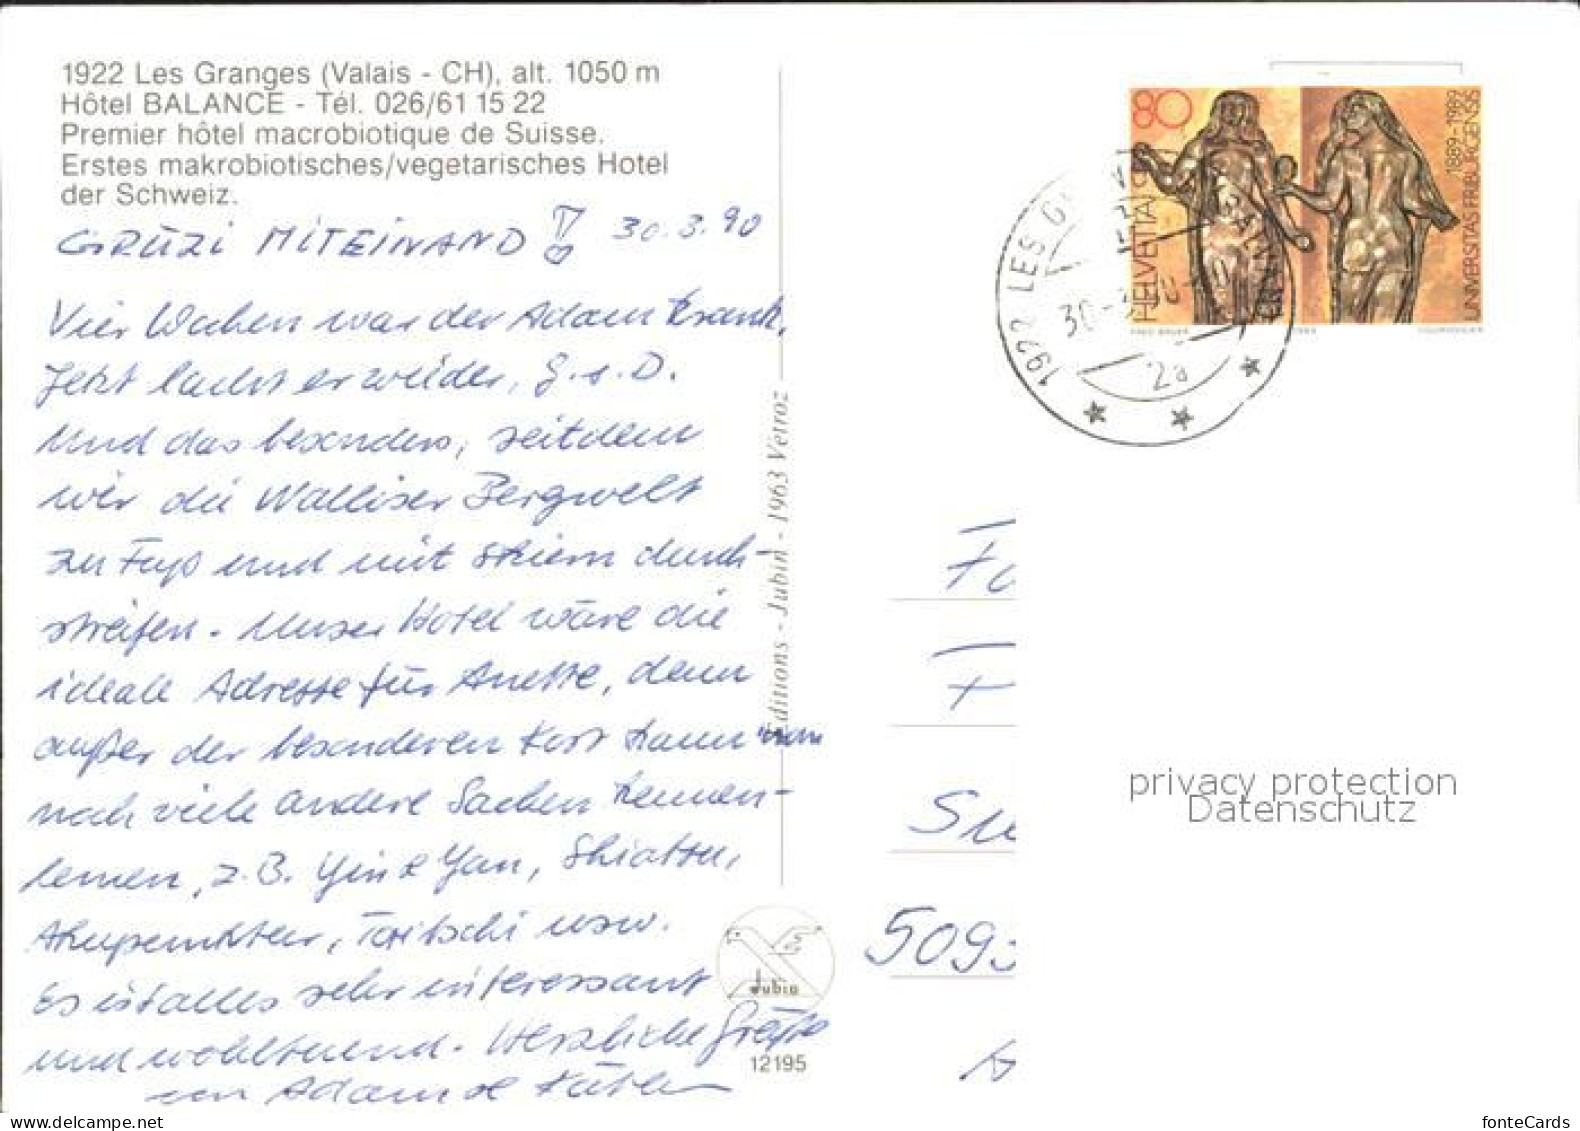 1922 Les Granges (Valais - CH), alt. 1050 m
Hôtel BALANCE - Tél. 026/61 15 22
Premier hôtel macrobiotique de Suisse.
Erstes makrobiotisches/vegetarisches Hotel
der Schweiz.
GRÜZI MITEINAND! 30.3.90
Vier Wochen war der Adam krank.
Jetzt lacht er wieder, G.s.D.
Und das besonders, seitdem
wir die Walliser Bergwelt
zu Fuß und mit Skiern durch-
streifen. Unser Hotel wäre die
ideale Adresse für Anette, denn
außer der besonderen Kost kann man
noch viele andere Sachen kennen-
lernen, z.B. Yin & Yan, Shiatsu,
Akupunktur, Taitschi usw.
Es ist alles sehr interessant
und wohltuend. Herzliche Grüße
von Adam &
Editions - Jubin - 1963 Vétroz
Jubin
12195
80
HELVETIA
1889-1989
UNIVERSITAS FRIBURGENSIS
1922 LES
30-3
2a
5093
privacy protection
Datenschutz
fonteCards